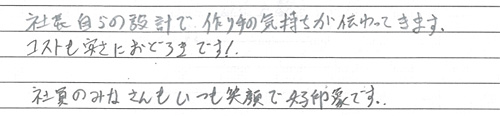 社長自らの設計で作り手の気持ちが伝わってきます。
コストも安さにおどろきです!
社員のみなさんもいつも笑顔で好印象です。